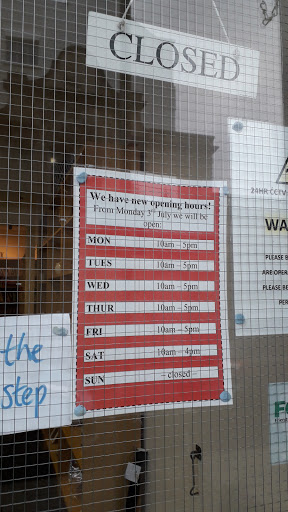 CLOSED
We have new opening hours!
From Monday 3rd July we will be
open:
MON 10am – 5pm
TUES 10am – 5pm
WED 10am – 5pm
THUR 10am – 5pm
FRI 10am – 5pm
SAT 10am – 4pm
SUN – closed –
the
step
24HR CCTV
WA
PLEASE B
ARE OPER
PLEASE BE
PER